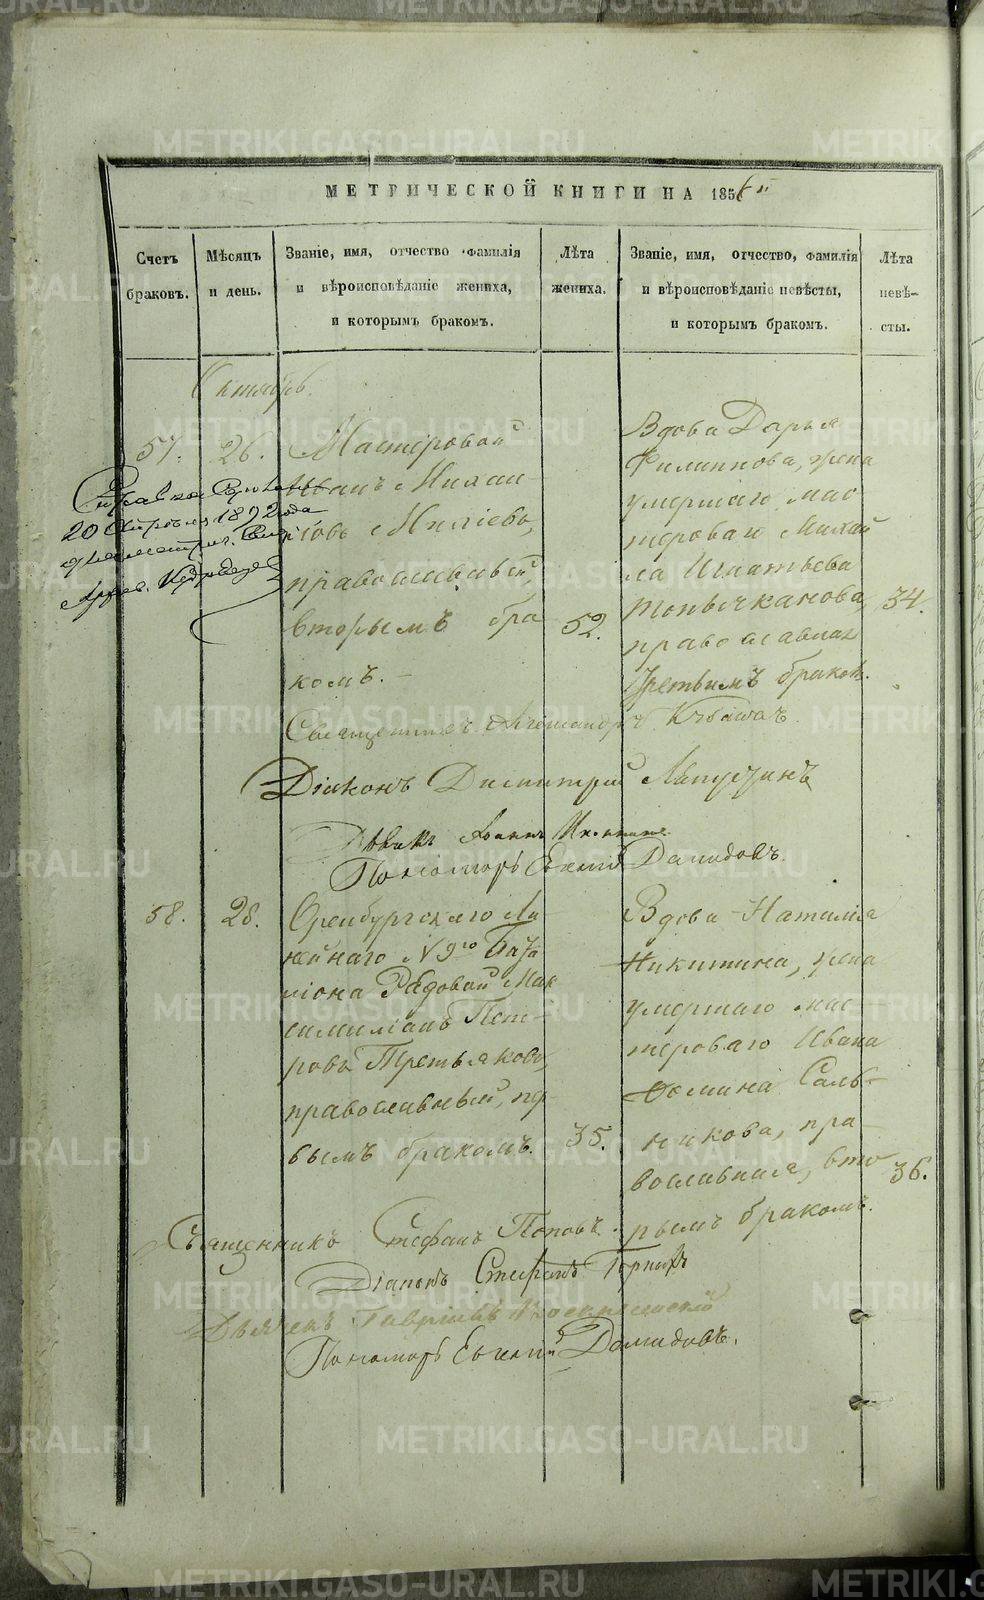 МЕТРИЧЕСКОЙ КНИГИ НА 185
Счетъ браковъ.
Мѣсяцъ и день.
Званіе, имя, отчество фамилія
и вѣроисповѣданіе жениха,
и которымъ бракомъ.
Лѣта жениха.
Званіе, имя, отчество, фамилія
и вѣроисповѣданіе невѣсты,
и которымъ бракомъ.
Лѣта невѣ-
сты.
Октябрь.
57. 26.
Мастеровой
Иванъ Михаи-
ловъ
православный,
вторымъ бра
комъ. -
52.
Вдова Дарья
Филиппова, жена
умершаго мас
терова Михай
ла Игнатьева
Топычканова,
православная
третьимъ бракомъ.
34.
20 Апрѣля 1892 года
Священникъ Александръ
Діаконъ Димитрій Лапустинъ
Дьячекъ Іоаннъ
Пономарь Евгеній Дамидовъ.
58. 28.
Оренбургскаго Ли-
нейнаго N 9го Бата
ліона Рядовой Мак
симиліанъ Пет-
ровъ Третьяковъ,
православный, пер
вымъ бракомъ.
35.
Вдова Наталія
Никитина, жена
умершаго мас
тероваго Ивана
Фомина Саль-
никова, пра-
вославная, вто
рымъ бракомъ.
36.
Священникъ Стефанъ Поповъ.
Діаконъ Стефанъ
Дьячекъ Гавріилъ Воскресенскій
Пономарь Евгеній Дамидовъ.
METRIKI.GASO-URAL.RU